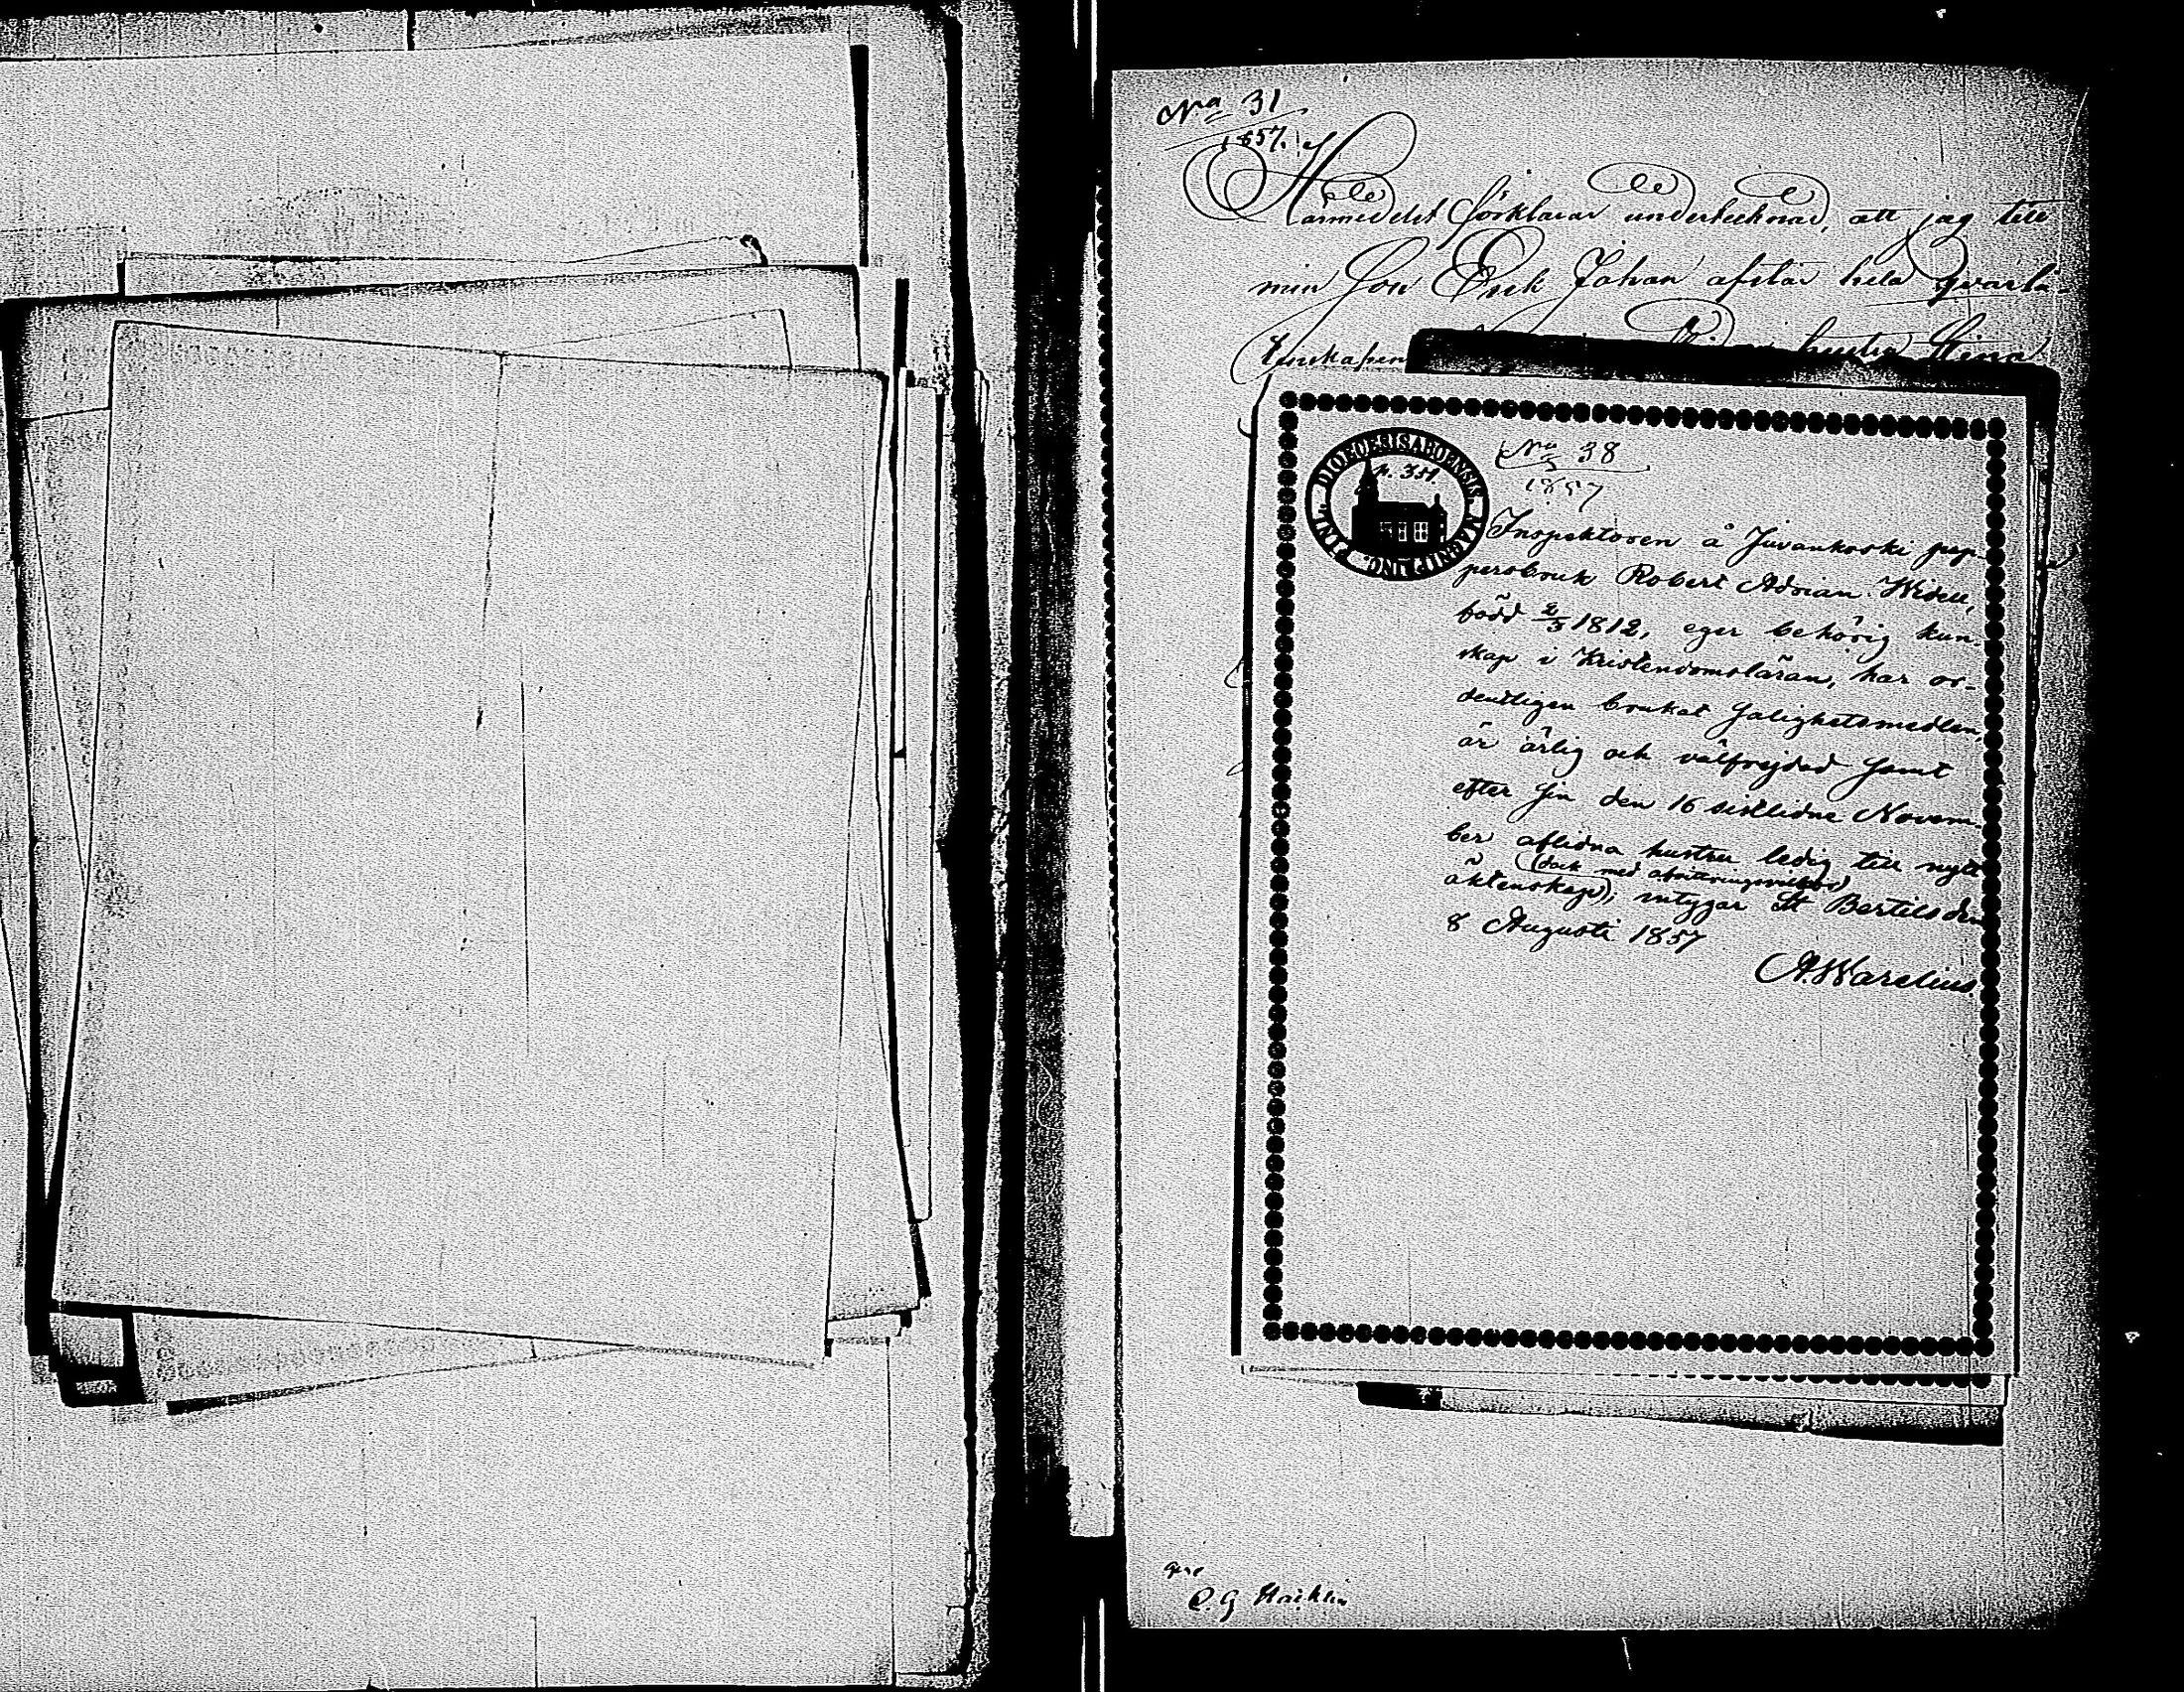 No 31
1857.
Härmedelst förklarar undertecknad, att jag till
min Son Erik Johan afstår hela qvarlå-
tenskapen hustru Stina
DIOEOESIS ABOENSIS MAGNI PRINC. FINL.
No 38
1857
Inspektoren å Juvankoski pap-
persbruk Robert Adrian Widell,
född 2/5 1812, eger behörig kun-
skap i Kristendomsläran, har or-
dentligen brukat Salighetsmedlen,
är ärlig och välfrejdad Samt
efter Sin den 16 sistlidne Novem-
ber aflidna hustru ledig till nytt
(dock med afvittringsvilkor)
äktenskap, intygar St Bertils den
8 Augusti 1857
A. Warelius.
C. G.